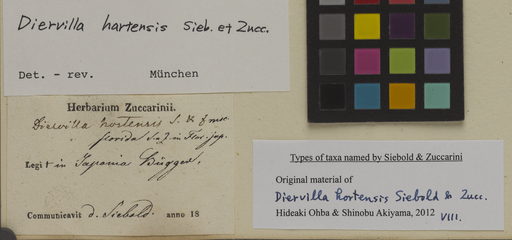 Diervilla hartensis Sieb. et Zucc.
Det. - rev. München
Herbarium Zuccarinii.
Diervilla hortensis S. & Z
florida S. & Z in Flor. jap.
Legit in Japonia Bürger.
Communicavit d. Siebold. anno 18
Types of taxa named by Siebold & Zuccarini
Original material of
Diervilla hortensis Siebold & Zucc.
Hideaki Ohba & Shinobu Akiyama, 2012 VIII.